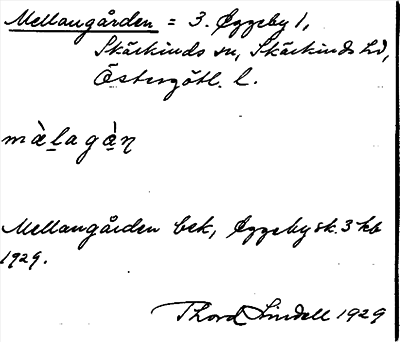 Mellangården = 3. Øggeby 1,
Skärkinds sn, Skärkinds hd,
Östergötl. l.
màlagàn
Mellangården bek, Øggeby sk. 3 kb
1929.
Thord Lindell 1929